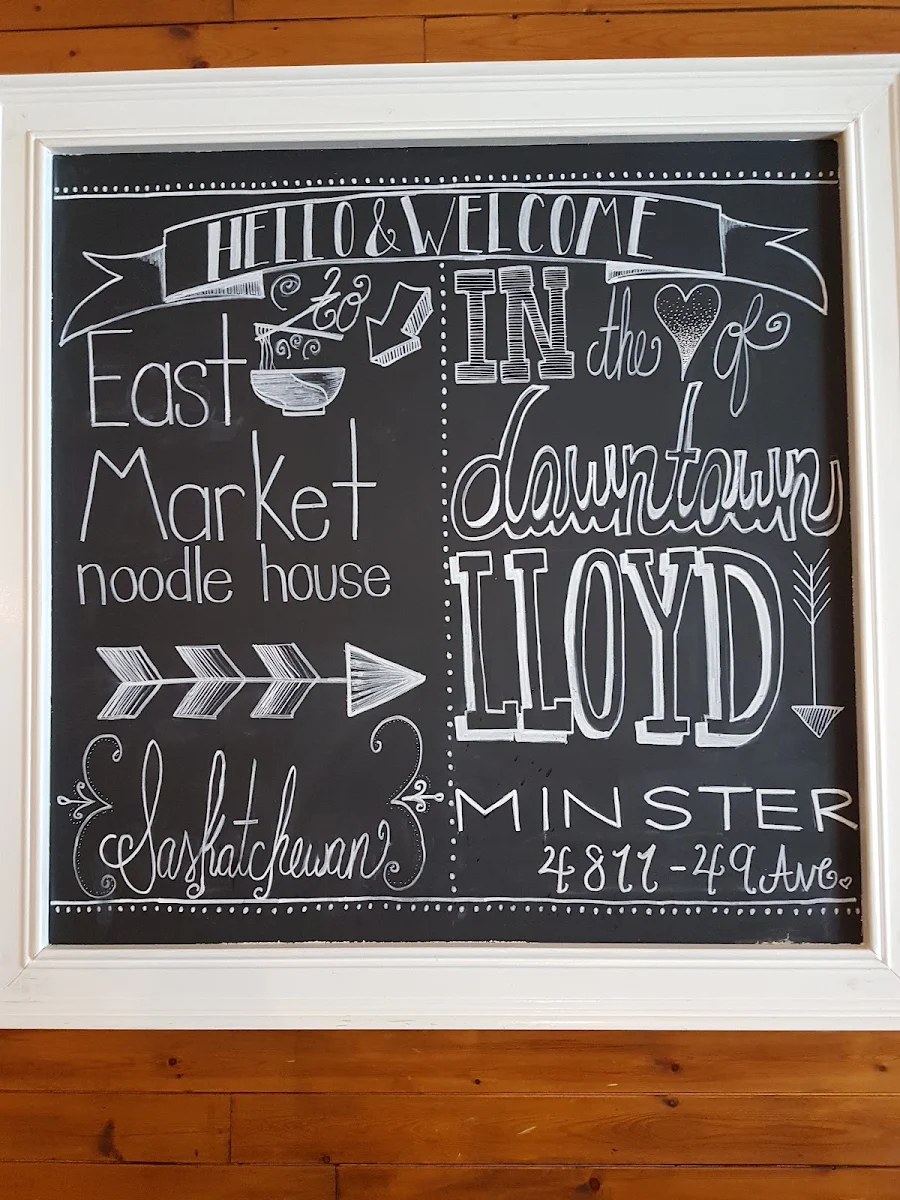 HELLO & WELCOME
to
East
Market
noodle house
Saskatchewan
IN the of
downtown
LLOYD
MINSTER
4811-49 Ave.